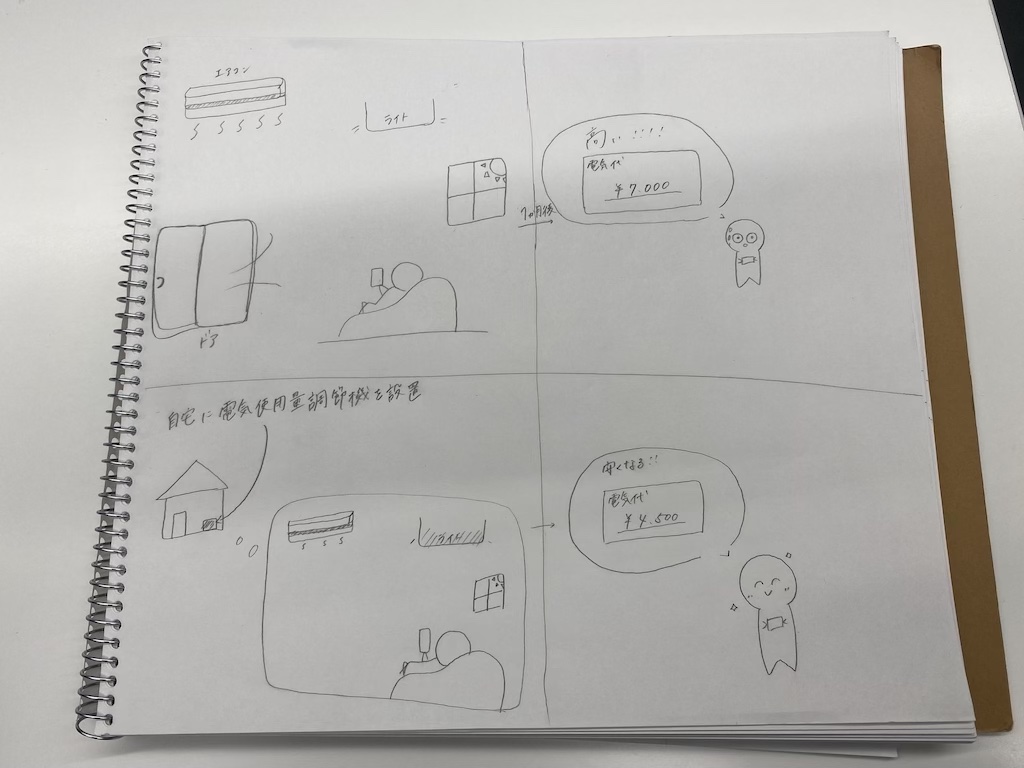 エアコン
ライト
ドア
1ヶ月後
高い!!!!
電気代
¥7,000
自宅に電気使用量調節機を設置
ライト
安くなる!!
電気代
¥4,500